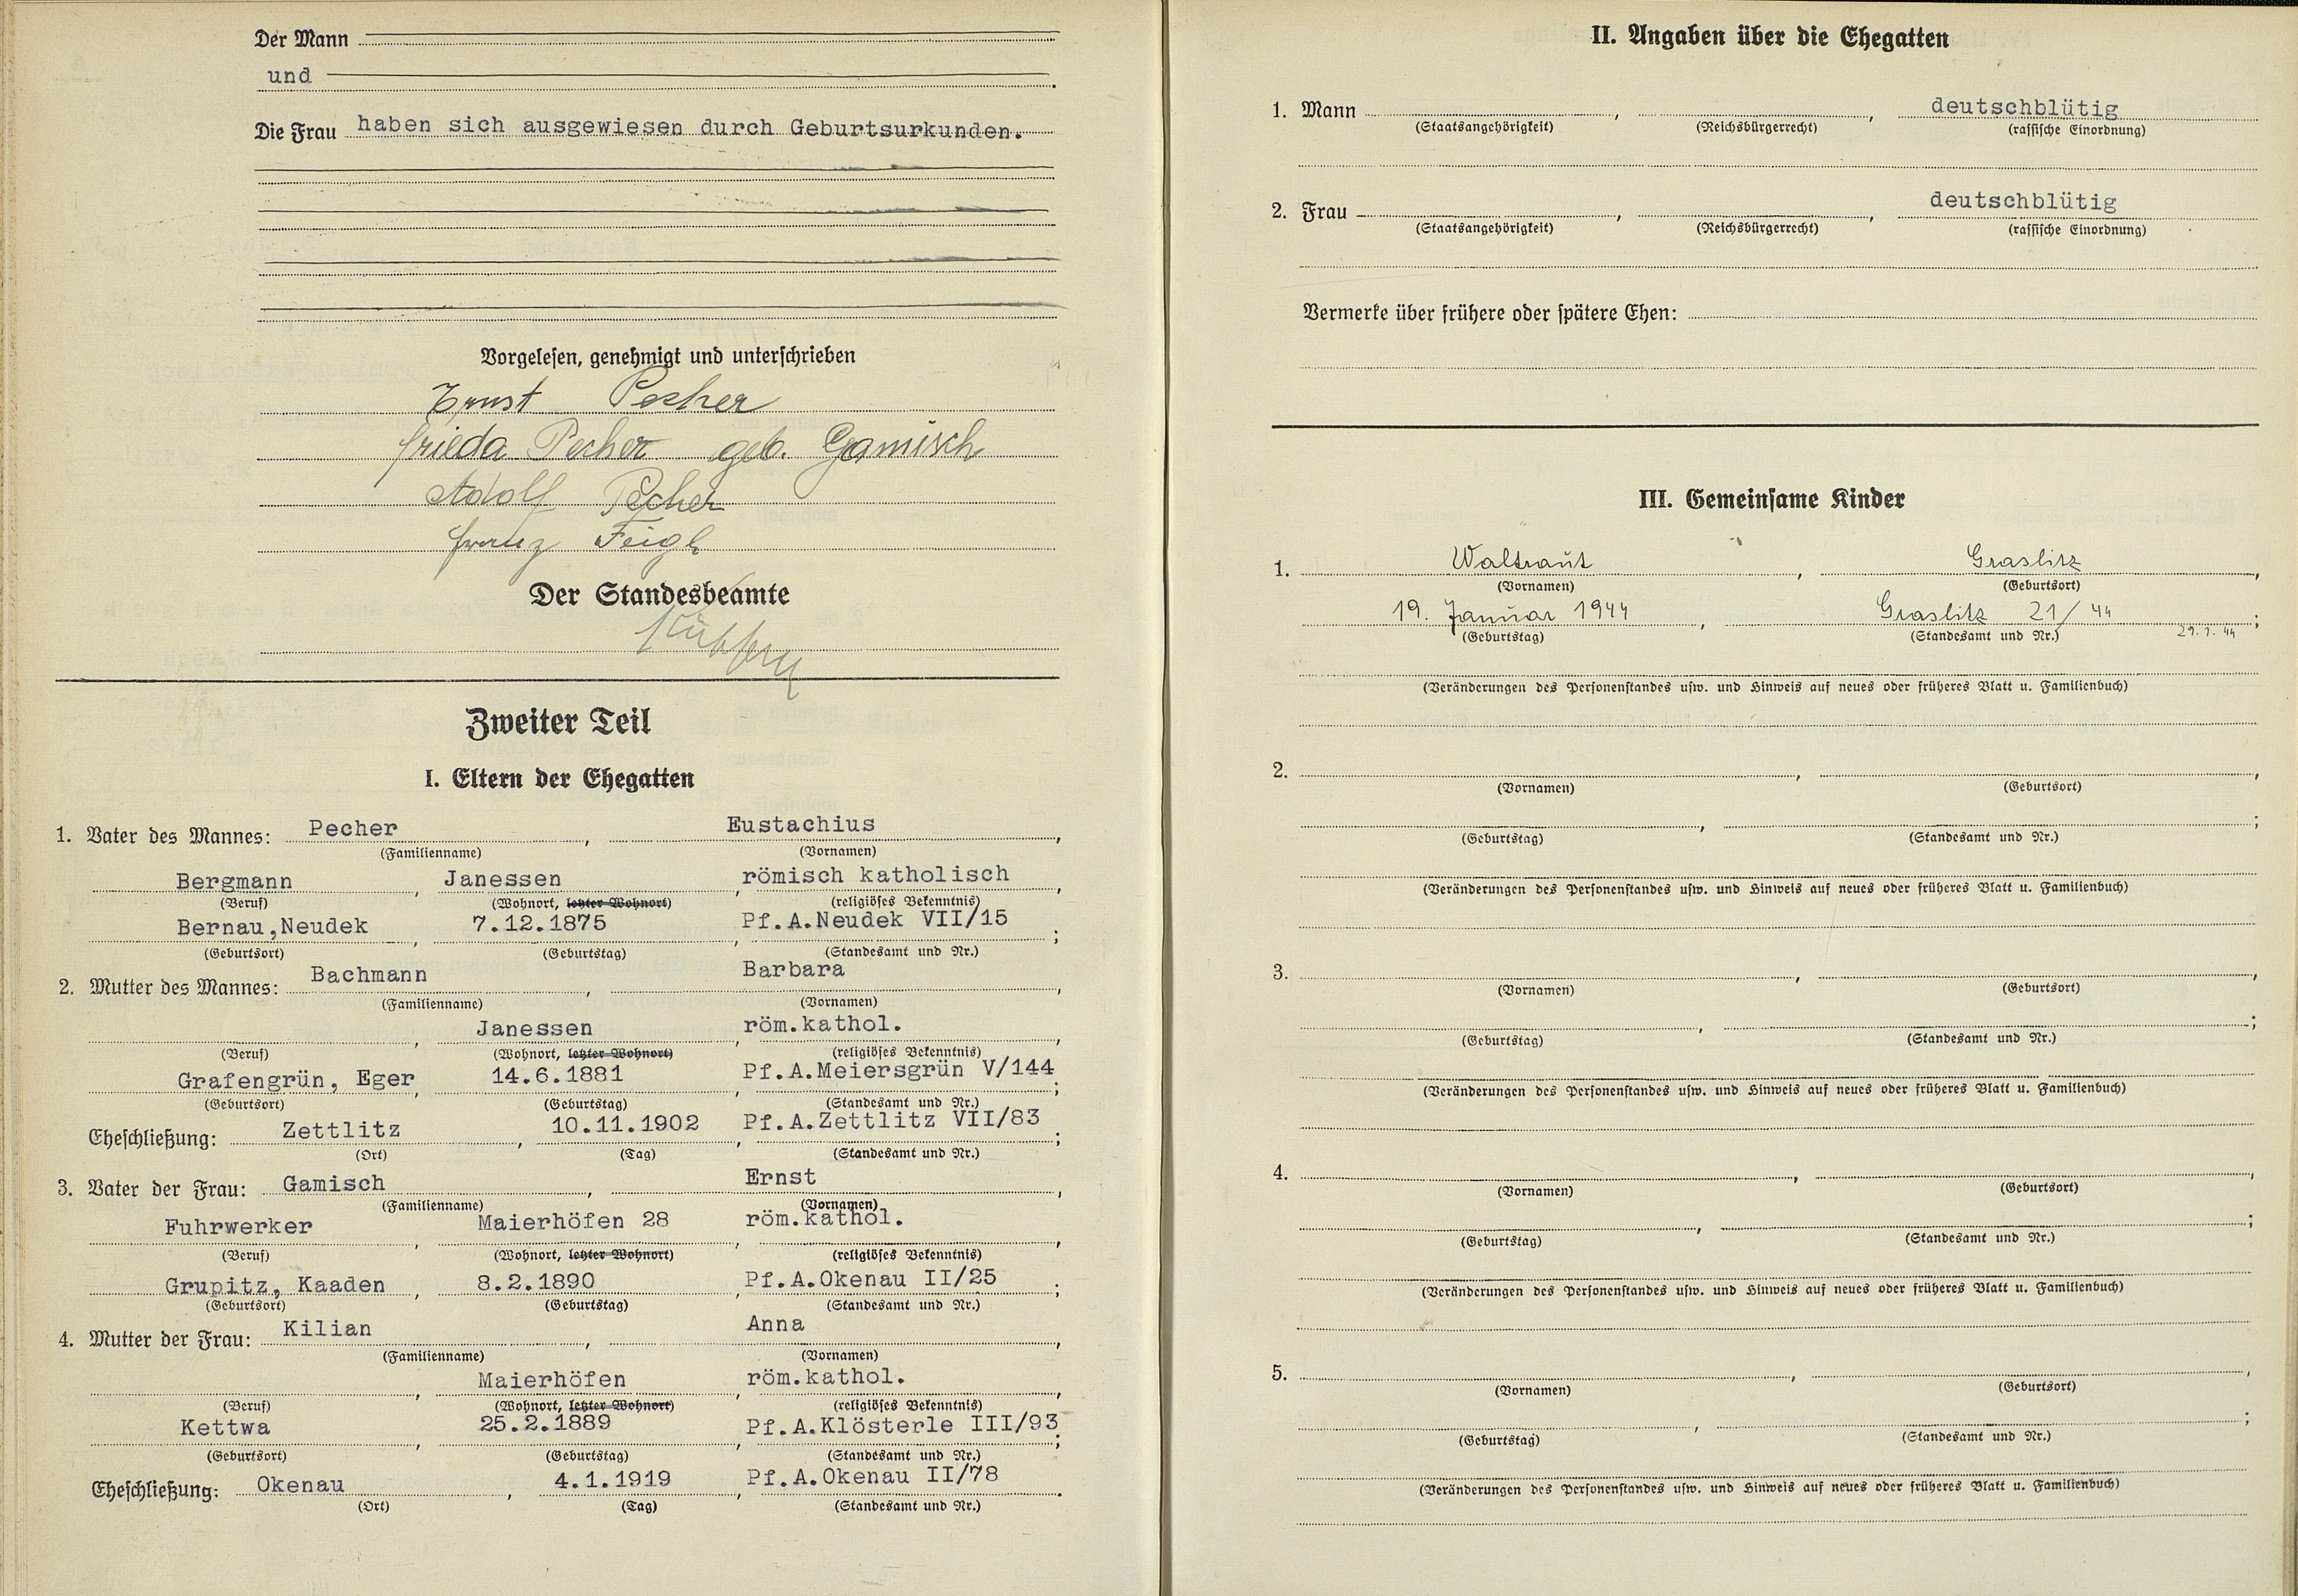 Der Mann
und
Die Frau haben sich ausgewiesen durch Geburtsurkunden.
Vorgelesen, genehmigt und unterschrieben
Ernst Pecher
Frieda Pecher geb. Gamisch
Adolf Pecher
Franz Feigl
Der Standesbeamte
Zweiter Teil
I. Eltern der Ehegatten
1. Vater des Mannes: Pecher, Eustachius,
(Familienname) (Vornamen)
Bergmann, Janessen, römisch katholisch,
(Beruf) (Wohnort, letzter Wohnort) (religiöses Bekenntnis)
Bernau,Neudek, 7.12.1875, Pf.A.Neudek VII/15;
(Geburtsort) (Geburtstag) (Standesamt und Nr.)
2. Mutter des Mannes: Bachmann, Barbara,
(Familienname) (Vornamen)
, Janessen, röm.kathol.,
(Beruf) (Wohnort, letzter Wohnort) (religiöses Bekenntnis)
Grafengrün, Eger, 14.6.1881, Pf.A.Meiersgrün V/144;
(Geburtsort) (Geburtstag) (Standesamt und Nr.)
Eheschließung: Zettlitz, 10.11.1902, Pf.A.Zettlitz VII/83;
(Ort) (Tag) (Standesamt und Nr.)
3. Vater der Frau: Gamisch, Ernst,
(Familienname) (Vornamen)
Fuhrwerker, Maierhöfen 28, röm.kathol.,
(Beruf) (Wohnort, letzter Wohnort) (religiöses Bekenntnis)
Grupitz, Kaaden, 8.2.1890, Pf.A.Okenau II/25;
(Geburtsort) (Geburtstag) (Standesamt und Nr.)
4. Mutter der Frau: Kilian, Anna,
(Familienname) (Vornamen)
, Maierhöfen, röm.kathol.,
(Beruf) (Wohnort, letzter Wohnort) (religiöses Bekenntnis)
Kettwa, 25.2.1889, Pf.A.Klösterle III/93;
(Geburtsort) (Geburtstag) (Standesamt und Nr.)
Eheschließung: Okenau, 4.1.1919, Pf.A.Okenau II/78.
(Ort) (Tag) (Standesamt und Nr.)
II. Angaben über die Ehegatten
1. Mann , , deutschblütig
(Staatsangehörigkeit) (Reichsbürgerrecht) (rassische Einordnung)
2. Frau , , deutschblütig
(Staatsangehörigkeit) (Reichsbürgerrecht) (rassische Einordnung)
Vermerke über frühere oder spätere Ehen:
III. Gemeinsame Kinder
1. Waltraut, Graslitz,
(Vornamen) (Geburtsort)
19. Januar 1944, Graslitz 21/44;
(Geburtstag) (Standesamt und Nr.) 29.1.44
(Veränderungen des Personenstandes usw. und Hinweis auf neues oder früheres Blatt u. Familienbuch)
2. , ,
(Vornamen) (Geburtsort)
, ;
(Geburtstag) (Standesamt und Nr.)
(Veränderungen des Personenstandes usw. und Hinweis auf neues oder früheres Blatt u. Familienbuch)
3. , ,
(Vornamen) (Geburtsort)
, ;
(Geburtstag) (Standesamt und Nr.)
(Veränderungen des Personenstandes usw. und Hinweis auf neues oder früheres Blatt u. Familienbuch)
4. , ,
(Vornamen) (Geburtsort)
, ;
(Geburtstag) (Standesamt und Nr.)
(Veränderungen des Personenstandes usw. und Hinweis auf neues oder früheres Blatt u. Familienbuch)
5. , ,
(Vornamen) (Geburtsort)
, ;
(Geburtstag) (Standesamt und Nr.)
(Veränderungen des Personenstandes usw. und Hinweis auf neues oder früheres Blatt u. Familienbuch)